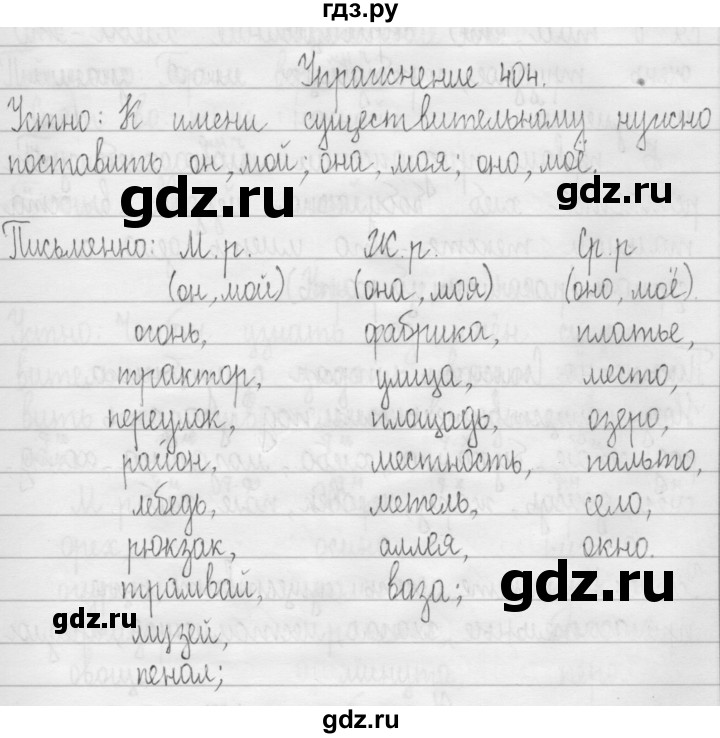 гдз.ру
Упражнение 404.
Устно: К имени существительному нужно
поставить он, мой; она, моя; оно, моё.
gdz.ru
gdz.ru
Письменно: М.р. Ж.р. Ср.р
(он, мой) (она, моя) (оно, моё).
огонь, фабрика, платье,
трактор, улица, место,
переулок, площадь, озеро,
район, местность, пальто,
лебедь, метель, село,
рюкзак, аллея, окно.
трамвай, ваза;
gdz.ru
gdz.ru
музей,
пенал;
gdz.ru